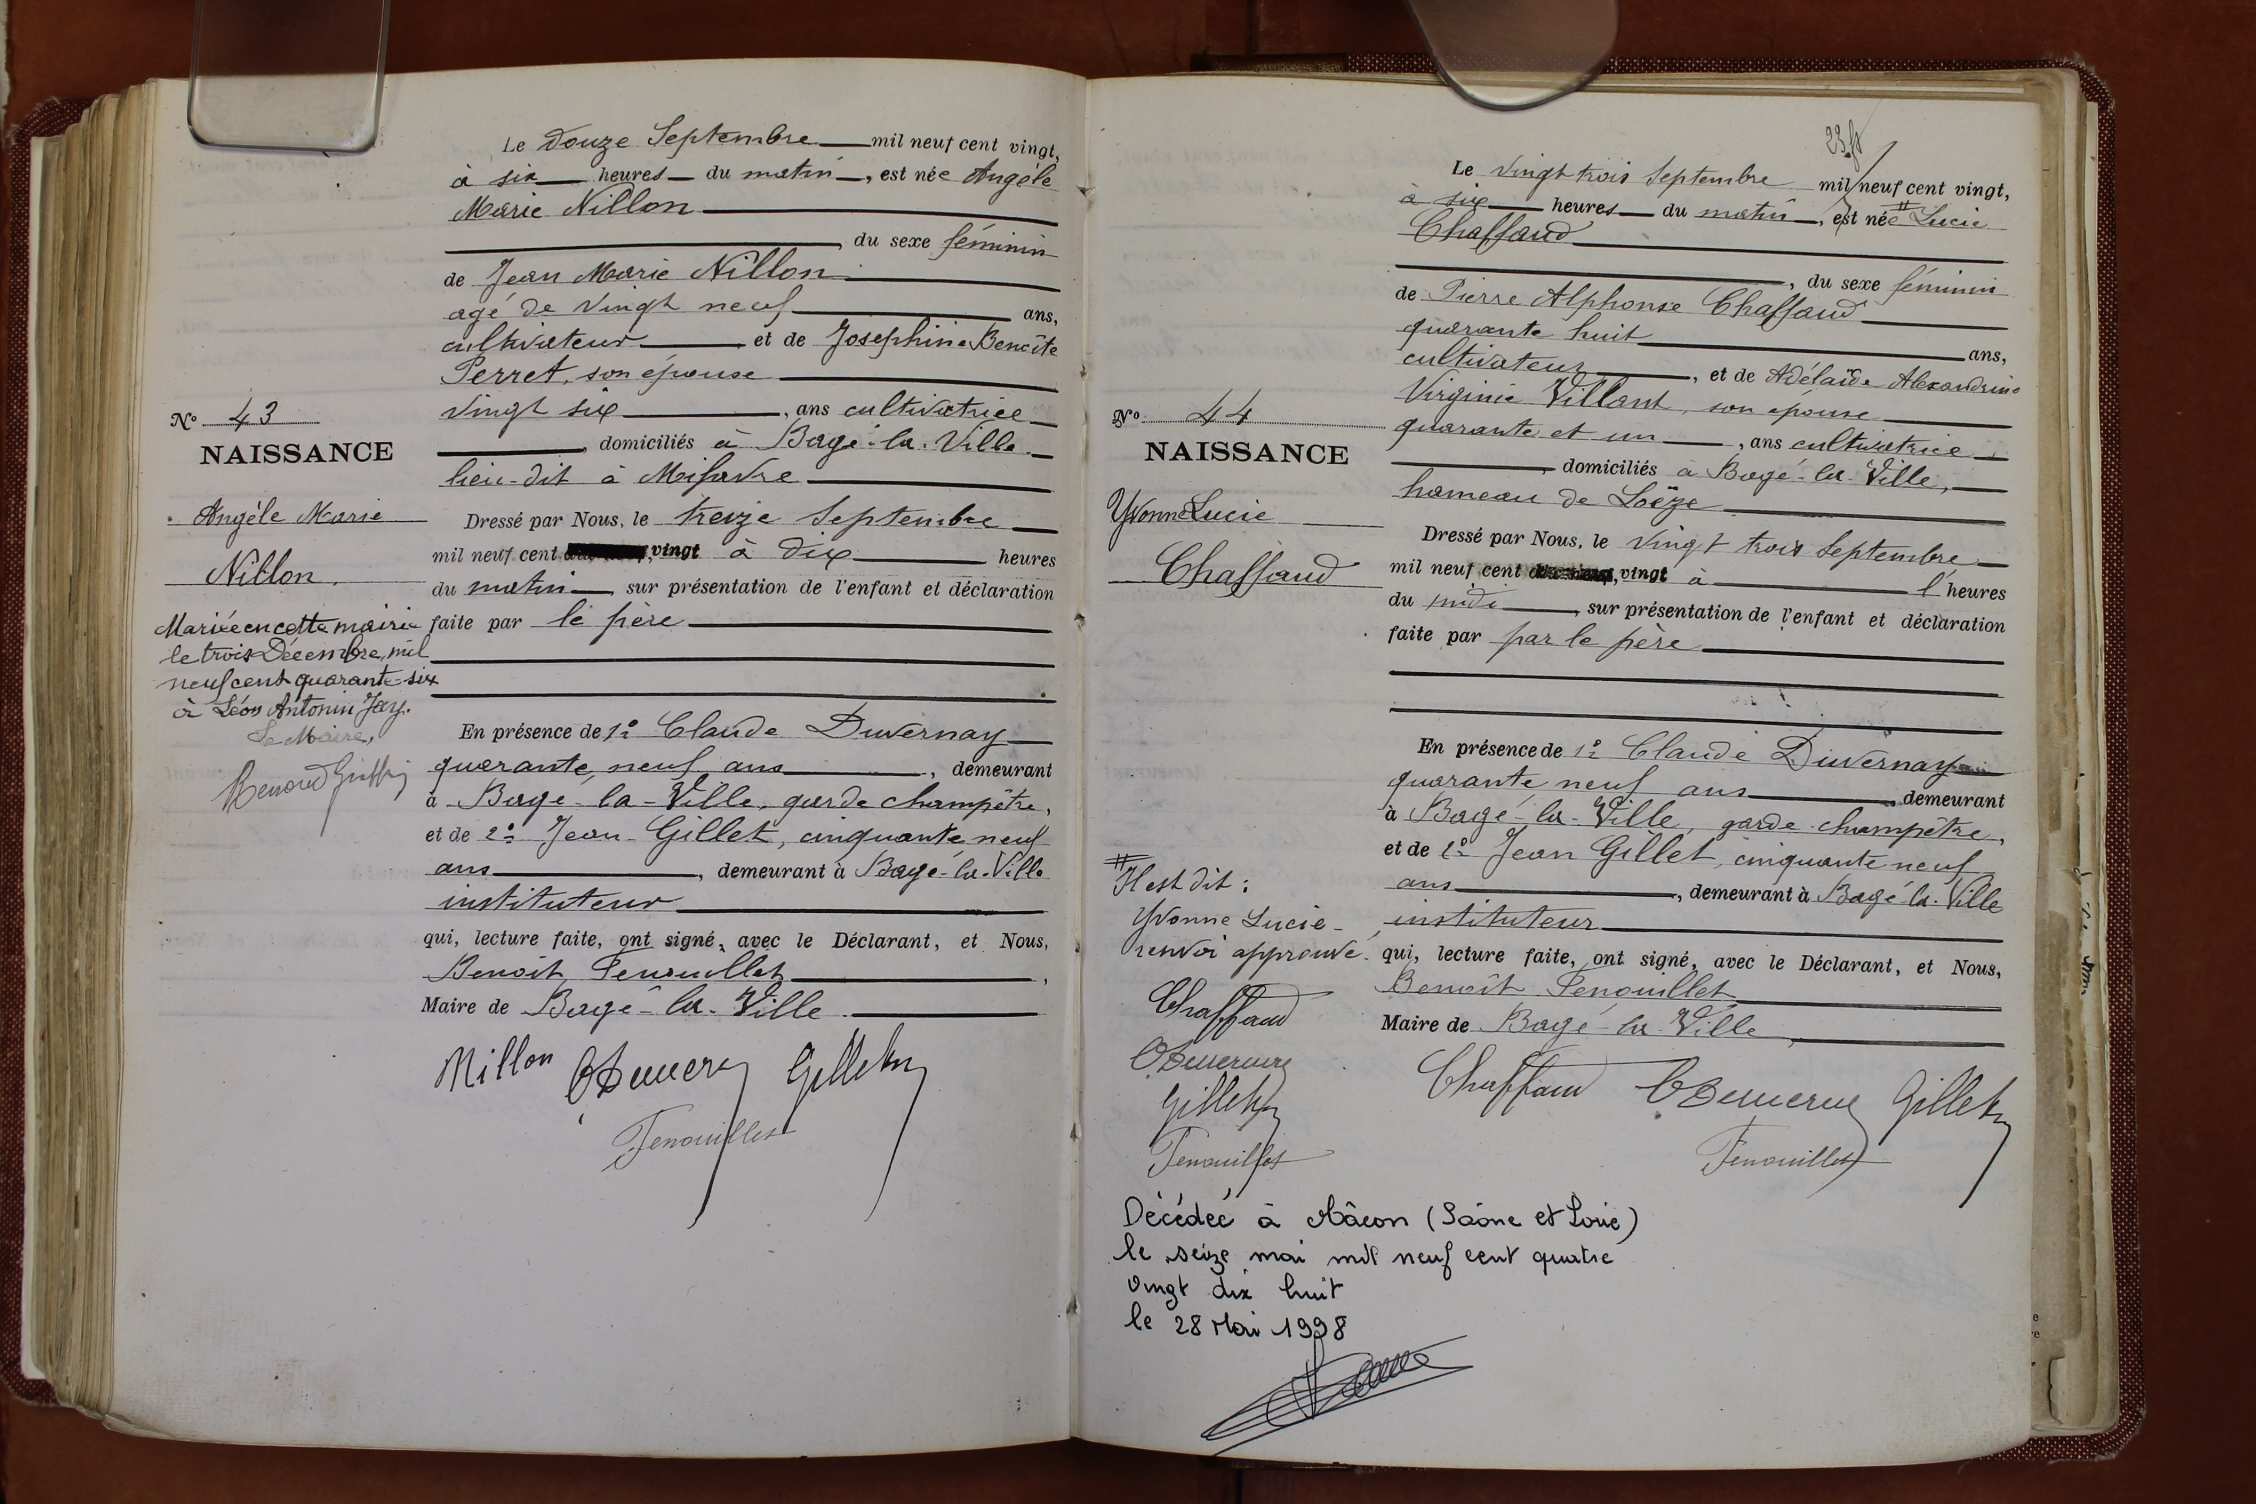 Le douze Septembre mil neuf cent vingt,
à six heures du matin, est née Angèle
Marie Nillon
, du sexe féminin
de Jean Marie Nillon
agé de vingt neuf ans,
cultivateur et de Joséphine Benoîte
Perret, son épouse
vingt six, ans cultivatrice
, domiciliés à Bagé-la-Ville
lieu-dit à Mifavre
Dressé par Nous, le treize Septembre
mil neuf cent vingt à dix heures
du matin, sur présentation de l'enfant et déclaration
faite par le père
En présence de 1° Claude Duvernay
quarante neuf ans, demeurant
à Bagé-la-Ville, garde champêtre,
et de 2° Jean Gillet, cinquante neuf
ans, demeurant à Bagé-la-Ville
instituteur
qui, lecture faite, ont signé, avec le Déclarant, et Nous,
Benoît Fenouillet,
Maire de Bagé-la-Ville
Nillon Gillet
Fenouillet
N° 43
NAISSANCE
Angèle Marie
Nillon.
Mariée en cette mairie
le trois Décembre mil
neuf cent quarante-six
à Léon Antonin Jay.
Le Maire,
23 st
Le vingt trois Septembre mil neuf cent vingt,
à six heures du matin, est née # Lucie
Chaffaud
, du sexe féminin
de Pierre Alphonse Chaffaud
quarante huit ans,
cultivateur, et de Adélaïde Alexandrine
Virginie Villant, son épouse
quarante et un, ans cultivatrice
, domiciliés à Bagé-la-Ville,
hameau de Loëze
Dressé par Nous, le vingt trois Septembre
mil neuf cent vingt à heures
du midi, sur présentation de l'enfant et déclaration
faite par par le père
En présence de 1° Claude Duvernay
quarante neuf ans, demeurant
à Bagé-la-Ville, garde-champêtre,
et de 2° Jean Gillet, cinquante neuf
ans, demeurant à Bagé-la-Ville
instituteur
qui, lecture faite, ont signé, avec le Déclarant, et Nous,
Benoît Fenouillet
Maire de Bagé-la-Ville,
Chaffaud Gillet
Fenouillet
N° 44
NAISSANCE
Yvonne Lucie
Chaffaud
# Il est dit :
Yvonne Lucie -
renvoi approuvé.
Chaffaud
Gillet
Fenouillet
Décédée à Mâcon (Saône et Loire)
le seize mai mil neuf cent quatre
vingt dix huit
le 28 Mai 1998